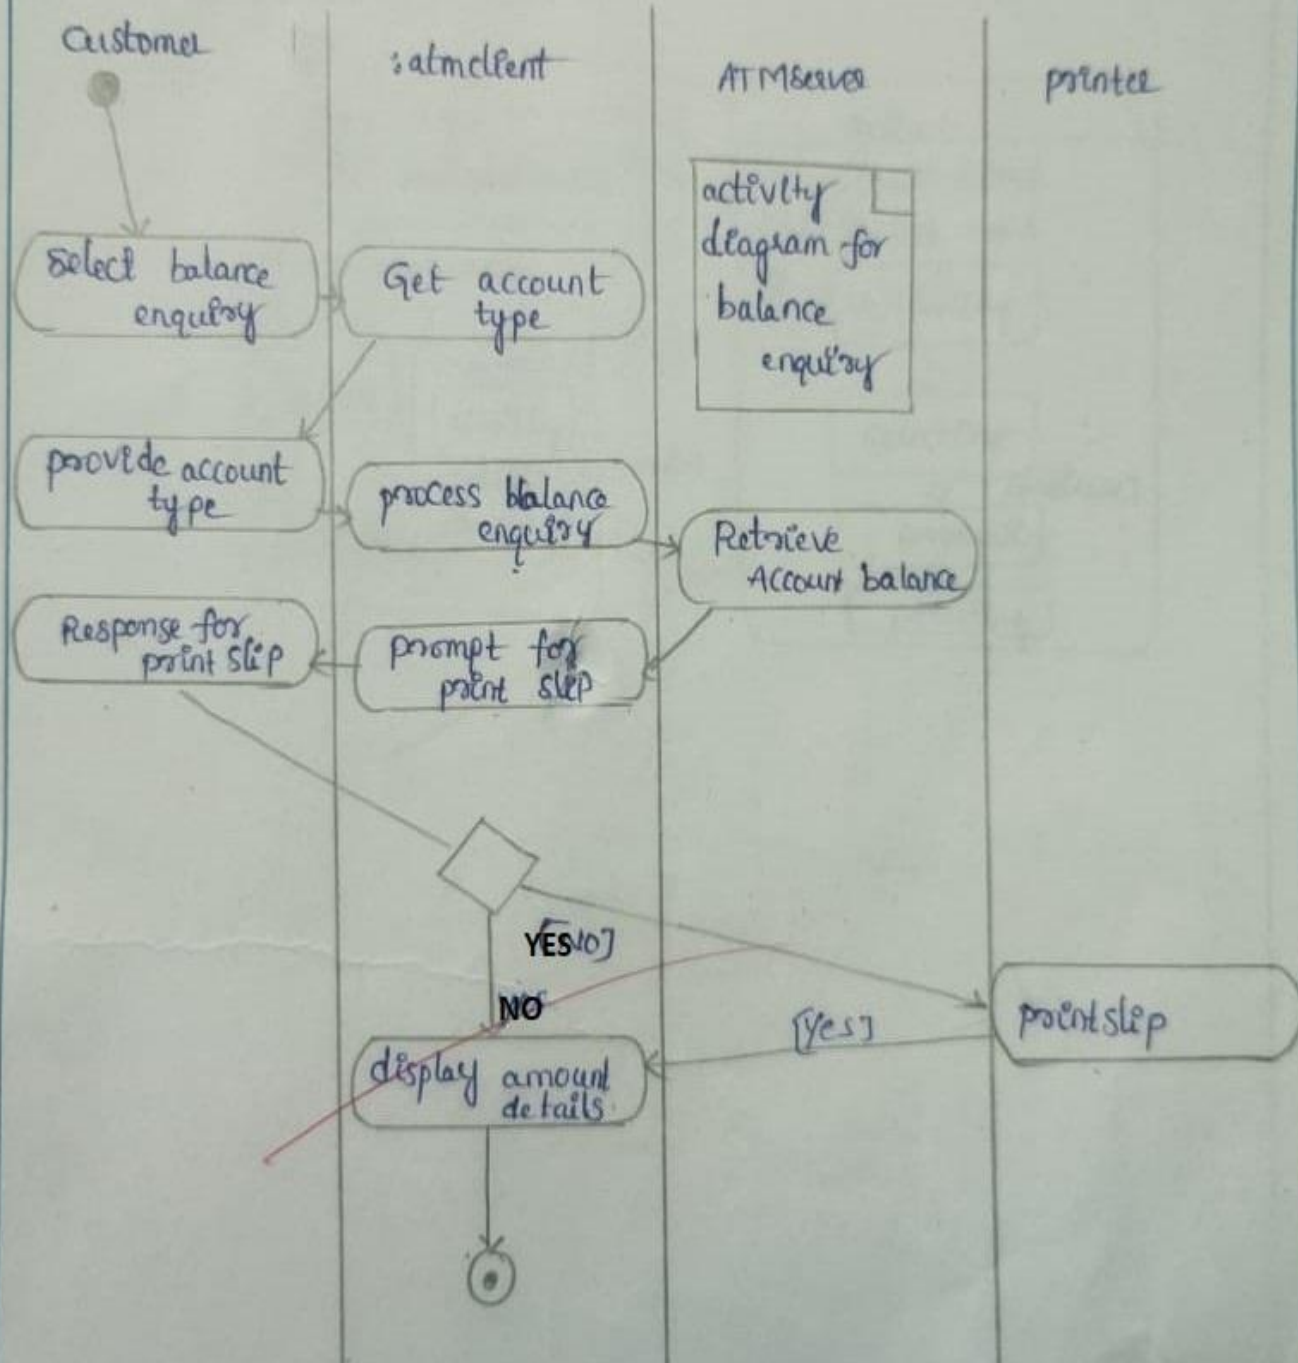 Customer
:atmclient
ATMServer
printer
activity
diagram for
balance
enquiry
select balance
enquiry
Get account
type
provide account
type
process balance
enquiry
Retrieve
Account balance
Response for
print slip
prompt for
print slip
YES NO]
NO
[Yes]
print slip
display amount
details